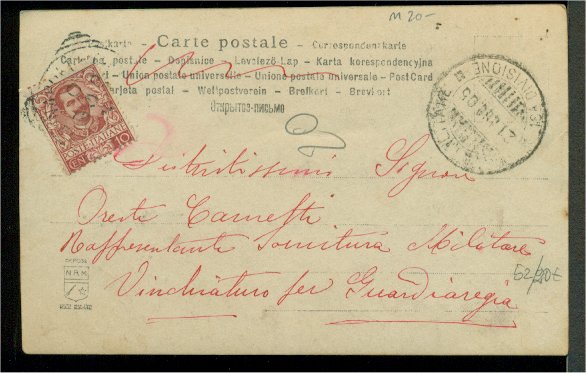 M 20-
Carte postale — Correspondenzkarte
Carte postale — Dopisnice — Levelező Lap — Karta korespondencyjna
Union postale universelle — Unione postale universale — PostCard
Tarjeta postal — Weltpostverein — Brefkort — Brevkort
Открытое письмо
POSTE ITALIANE
CENT. 10
DIVISIONE
Distintissimo Signore
Oreste Camesti
Rappresentante Fornitura Militare
62/20t
Vinchiaturo per Guardiaregia
N.R.M.